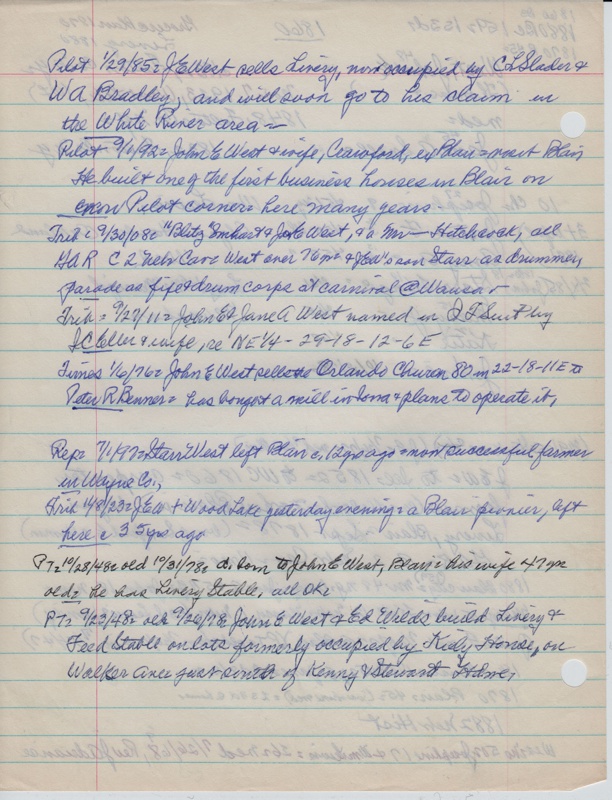 Pilot 1/29/85 = J E West sells Livery, now occupied by C L Slader &
W A Bradley, and will soon go to his claim in
the White River area =
Pilot 9/1/92 = John E West & wife, Crawford, ex Blair = visit Blair
He built one of the first business houses in Blair on
Pilot corner = here many years -
Trib = 9/30/08 = "Blitz" & J E West, & a Mr — Hitchcock, all
GAR C 2 Neb Cav = West over 76 & son Starr as drummer,
parade as fife & drum corps at carnival @ Wausa -
Trib = 9/27/11 = John E & Jane A West named in Q T Suit by
J C Eller & wife, re NE 1/4 - 29-18-12-6E
Times 1/6/76 = John E West sells Orlando Church 80 in 22-18-11E to
Peter R Benner = has bought a mill in Iowa & plans to operate it,
Rep = 7/1/97 = Starr West left Blair c 12 yrs ago = now successful farmer
in Wayne Co.,
Trib 14/8/23 = J E W + Wood Lake yesterday evening = a Blair pioneer, left
here c 35 yrs ago
PT = 10/28/48 = old 10/31/78 = d. born to John E West, Blair = his wife 47 yrs
old = he has Livery Stable, all OK =
PT = 9/23/48 = old 9/26/78 John E West & Ed Wilds build Livery &
Feed Stable on lots formerly occupied by Kidy House, on
Walker Ave = just south of Kenny & Stewart Hdwe,